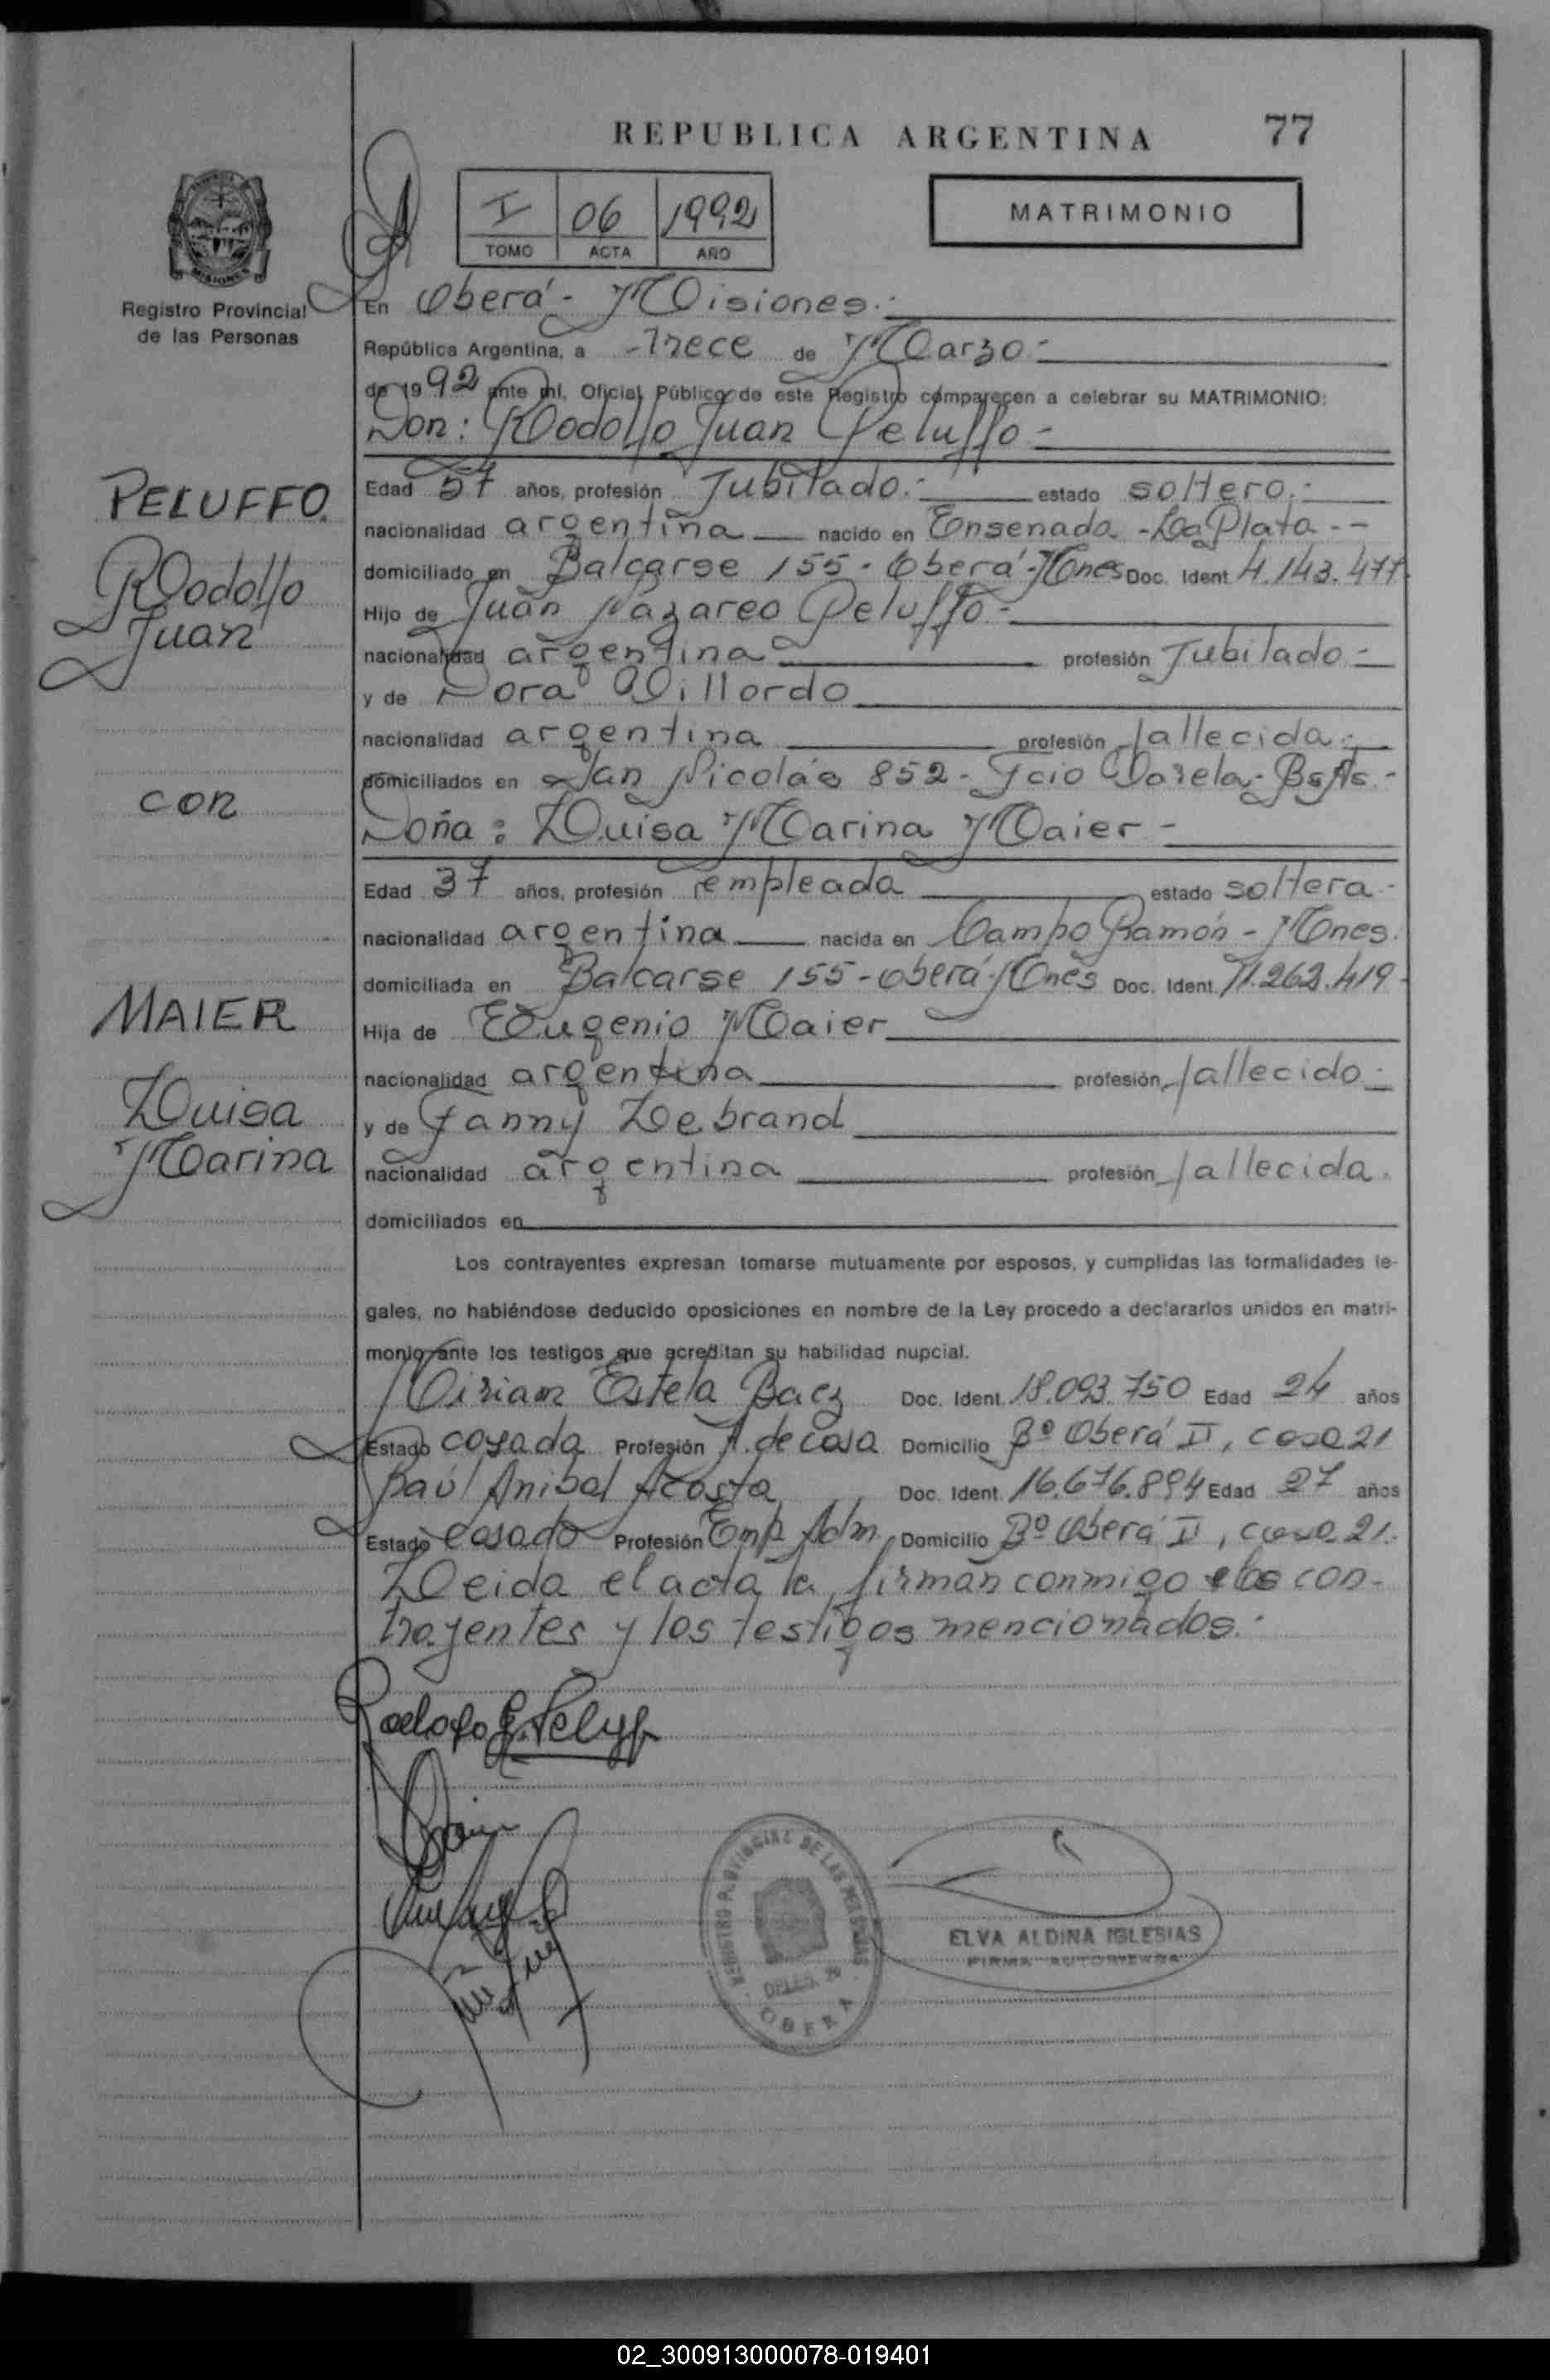 REPUBLICA ARGENTINA 77
I 06 1992
TOMO ACTA AÑO
MATRIMONIO
Registro Provincial
de las Personas
En Oberá - Misiones.-
República Argentina, a -Trece de Marzo-
de 1992 ante mi, Oficial Público de este Registro comparecen a celebrar su MATRIMONIO:
Don: Rodolfo Juan Peluffo-
PELUFFO.
Rodolfo
Juan
con
MAIER
Luisa
Marina
Edad 57 años, profesión Jubilado.- estado soltero.-
nacionalidad argentina nacido en Ensenada - La Plata.-
domiciliado en Balcarse 155 - Oberá - Mnes Doc. Ident. 4.143.477.
Hijo de Juan Nazareo Peluffo-
nacionalidad argentina profesión Jubilado-
y de Dora Villordo
nacionalidad argentina profesión fallecida-
domiciliados en San Nicolás 852 - Fcio Varela - BsAs.-
Doña: Luisa Marina Maier-
Edad 37 años, profesión empleada estado soltera-
nacionalidad argentina nacida en Campo Ramón - Mnes.
domiciliada en Balcarse 155 - Oberá - Mnes Doc. Ident. 11.262.419-
Hija de Eugenio Maier
nacionalidad argentina profesión fallecido-
y de Fanny Lebrand
nacionalidad argentina profesión fallecida.
domiciliados en
Los contrayentes expresan tomarse mutuamente por esposos, y cumplidas las formalidades le-
gales, no habiéndose deducido oposiciones en nombre de la Ley procedo a declararlos unidos en matri-
monio ante los testigos que acreditan su habilidad nupcial.
Miriam Estela Baez Doc. Ident. 18.093.750 Edad 24 años
Estado casada Profesión A. de casa Domicilio Bº Oberá II, casa 21
Raúl Anibal Acosta Doc. Ident. 16.676.894 Edad 27 años
Estado casado Profesión Emp. Adm. Domicilio Bº Oberá II, casa 21.
Leida el acta la firman conmigo los con-
trayentes y los testigos mencionados.-
REGISTRO PROVINCIAL DE LAS PERSONAS
OBERA
ELVA ALDINA IGLESIAS
FIRMA AUTORIZADA
02_300913000078-019401